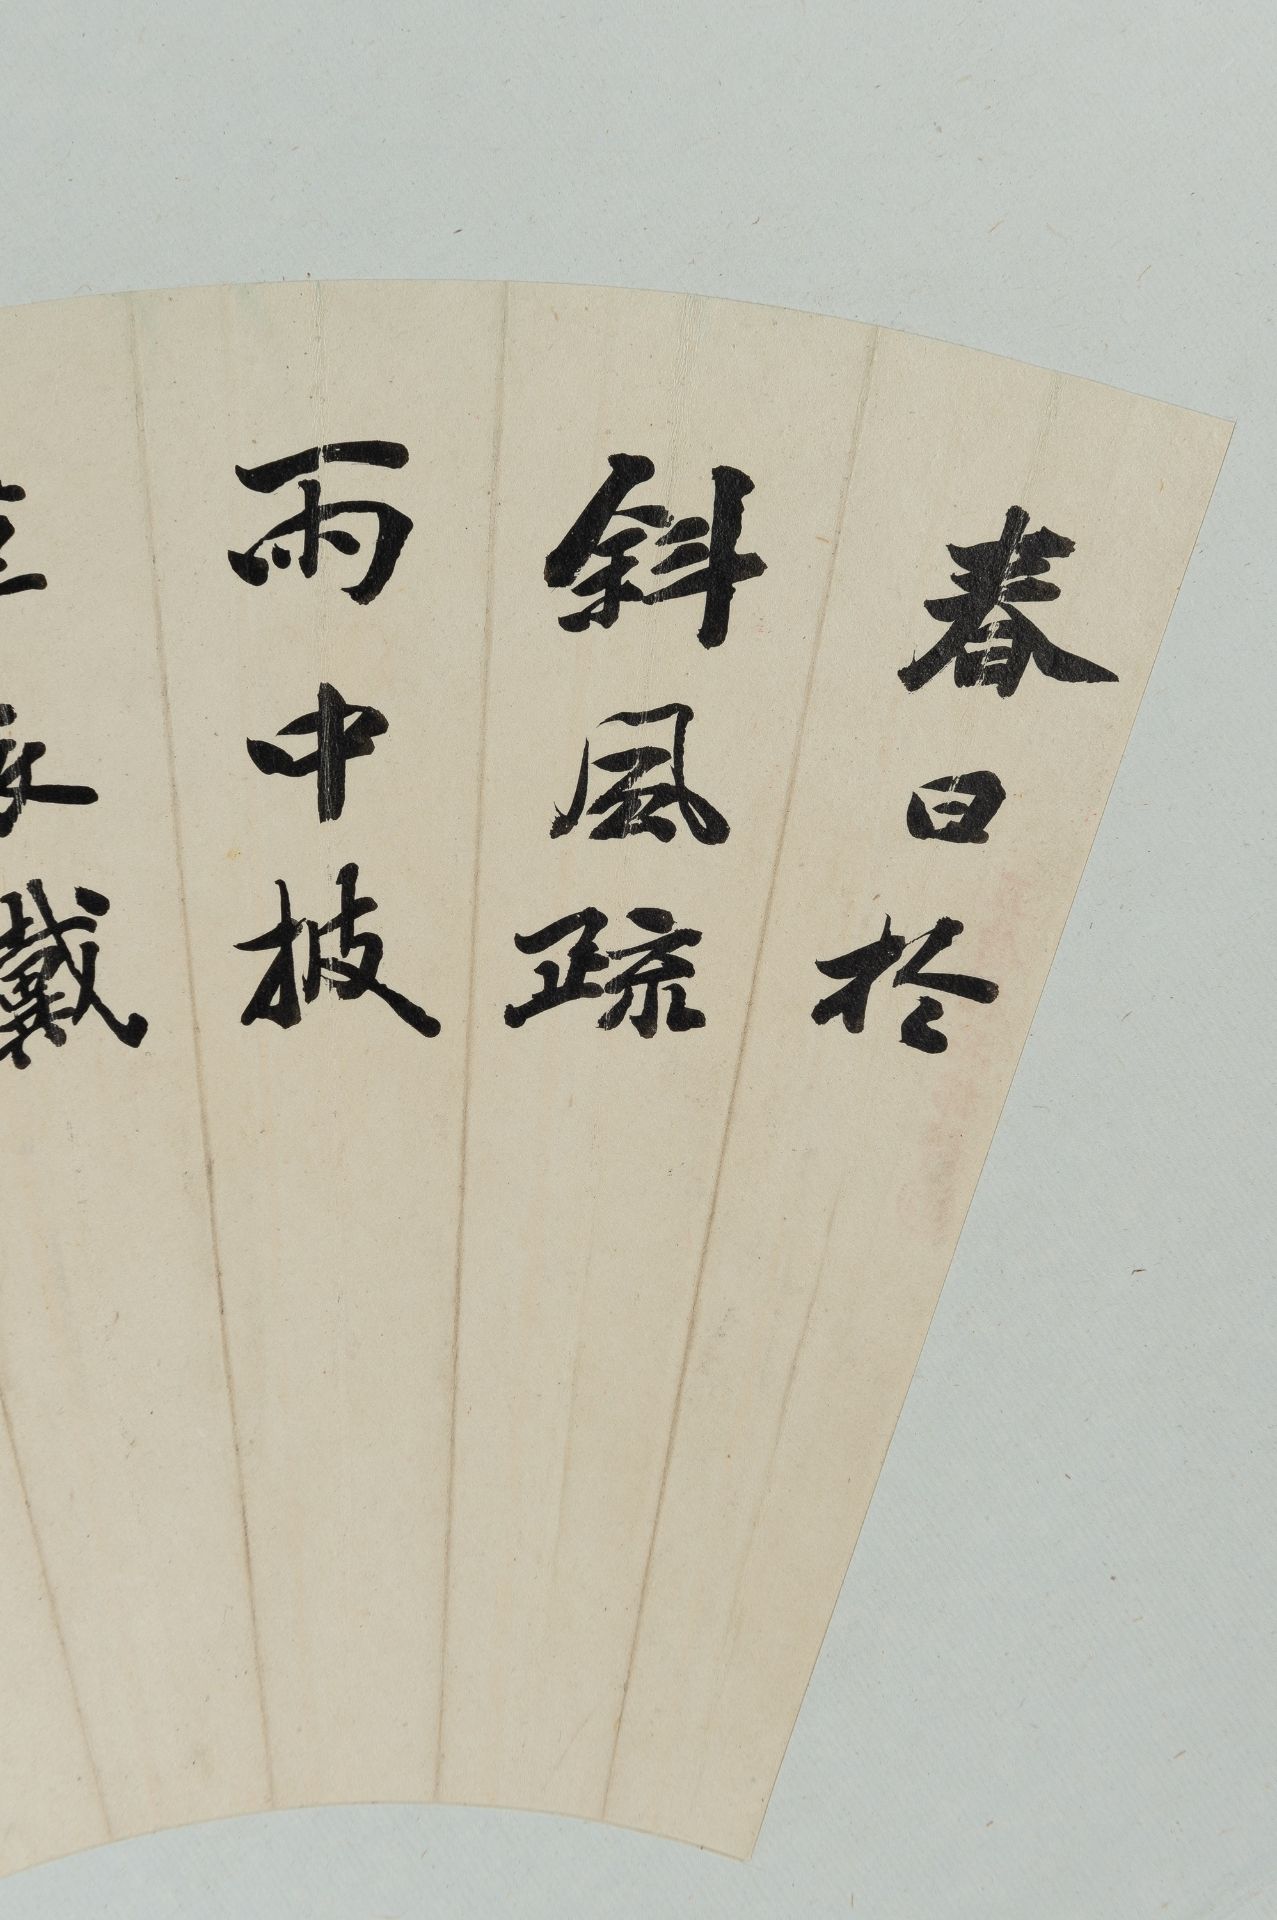 春日於
斜風疏
雨中披
戴